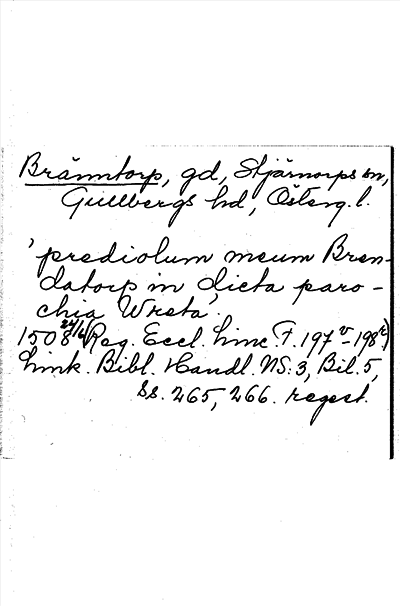 Bränntorp, gd, Stjärnorps sn,
Gullbergs hd, Österg. l.
'prediolum meum Bren-
datorp in dicta paro-
chia Wreta'.
1508 24/6 (Reg. Eccl. Linc. F. 197v-198r)
Link. Bibl. Handl. NS: 3, Bil. 5,
ss. 265, 266. regest.